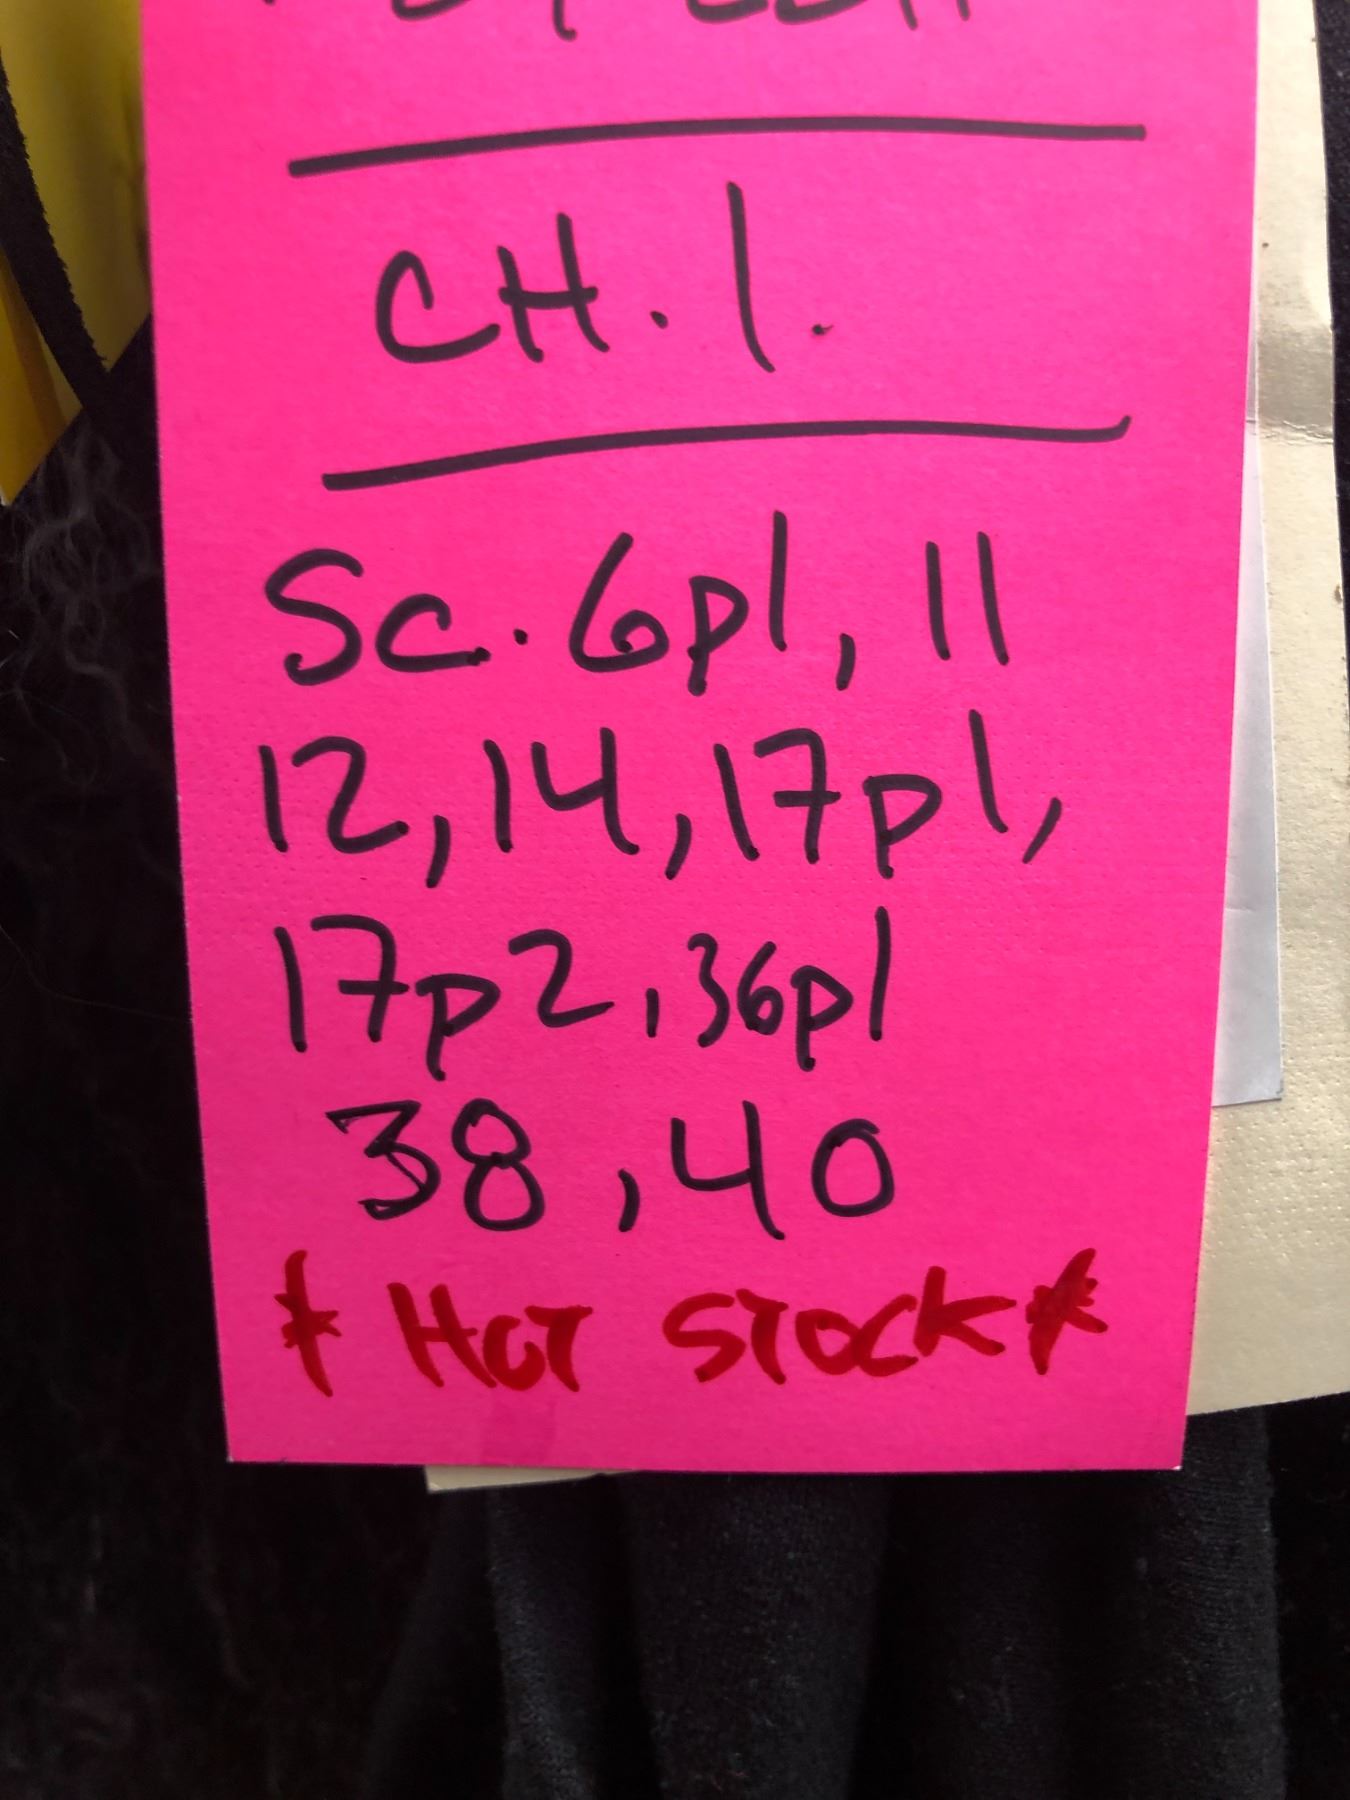 CH. 1.
Sc. 6p1, 11
12, 14, 17p1,
17p2, 36p1
38, 40
* HOT STOCK *